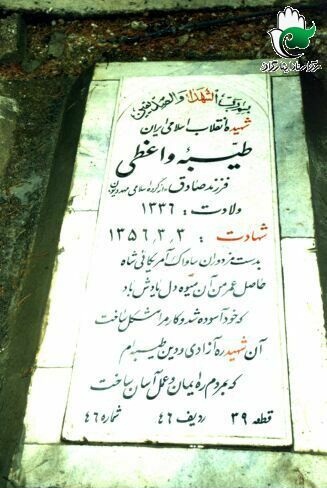 مزار یاران ایثارگران
رب الشهداء والصدیقین
شهیدهٔ انقلاب اسلامی ایران
طیبه واعظی
فرزند صادق - از گروه اسلامی مهدویون
ولادت : ۱۳۳۶
شهادت : ۱۳۵۶,۳,۳
بدست مزدوران ساواک آمریکائی شاه
حاصل عمر من آن میوه دل یادش باد
که خود آسوده شد و کار مرا مشکل ساخت
آن شهیده ره آزادی و دین طیبه ام
که بمردم ره ایمان و عمل آسان ساخت
قطعه ۳۹ ردیف ۴۶ شماره ۴۶